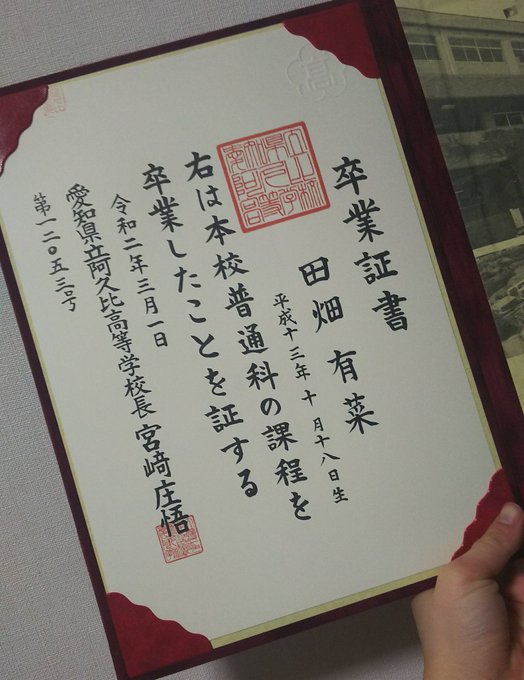 卒業証書
田畑 有菜
平成十三年 十 月十八日生
右は本校普通科の課程を
卒業したことを証する
令和二年三月一日
愛知県立阿久比高等学校長 宮﨑庄悟
第一二〇五三号
高